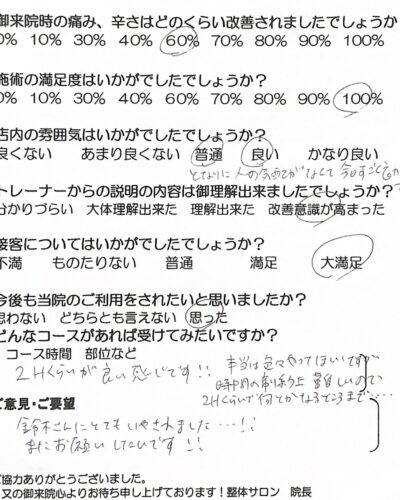 御来院時の痛み、辛さはどのくらい改善されましたでしょうか
0% 10% 30% 40% 60% 70% 80% 90% 100%
施術の満足度はいかがでしたでしょうか?
0% 10% 30% 40% 60% 70% 80% 90% 100%
店内の雰囲気はいかがでしたでしょうか?
良くない あまり良くない 普通 良い かなり良い
となりに人の気
トレーナーからの説明の内容は御理解出来ましたでしょうか?
分かりづらい 大体理解出来た 理解出来た 改善意識が高まった
接客についてはいかがでしたでしょうか?
不満 ものたりない 普通 満足 大満足
今後も当院のご利用をされたいと思いましたか?
思わない どちらとも言えない 思った
どんなコースがあれば受けてみたいですか?
コース時間 部位など
2Hくらいが良い感じです!!
本当は色々やってほしいですが
時間の制約上難しいので
2Hくらいで何とかなるところまで...
ご意見・ご要望
鈴木さんにとてもいやされました...!!
またお願いしたいです!!
ご協力ありがとうございました。
又の御来院心よりお待ち申し上げております!整体サロン 院長